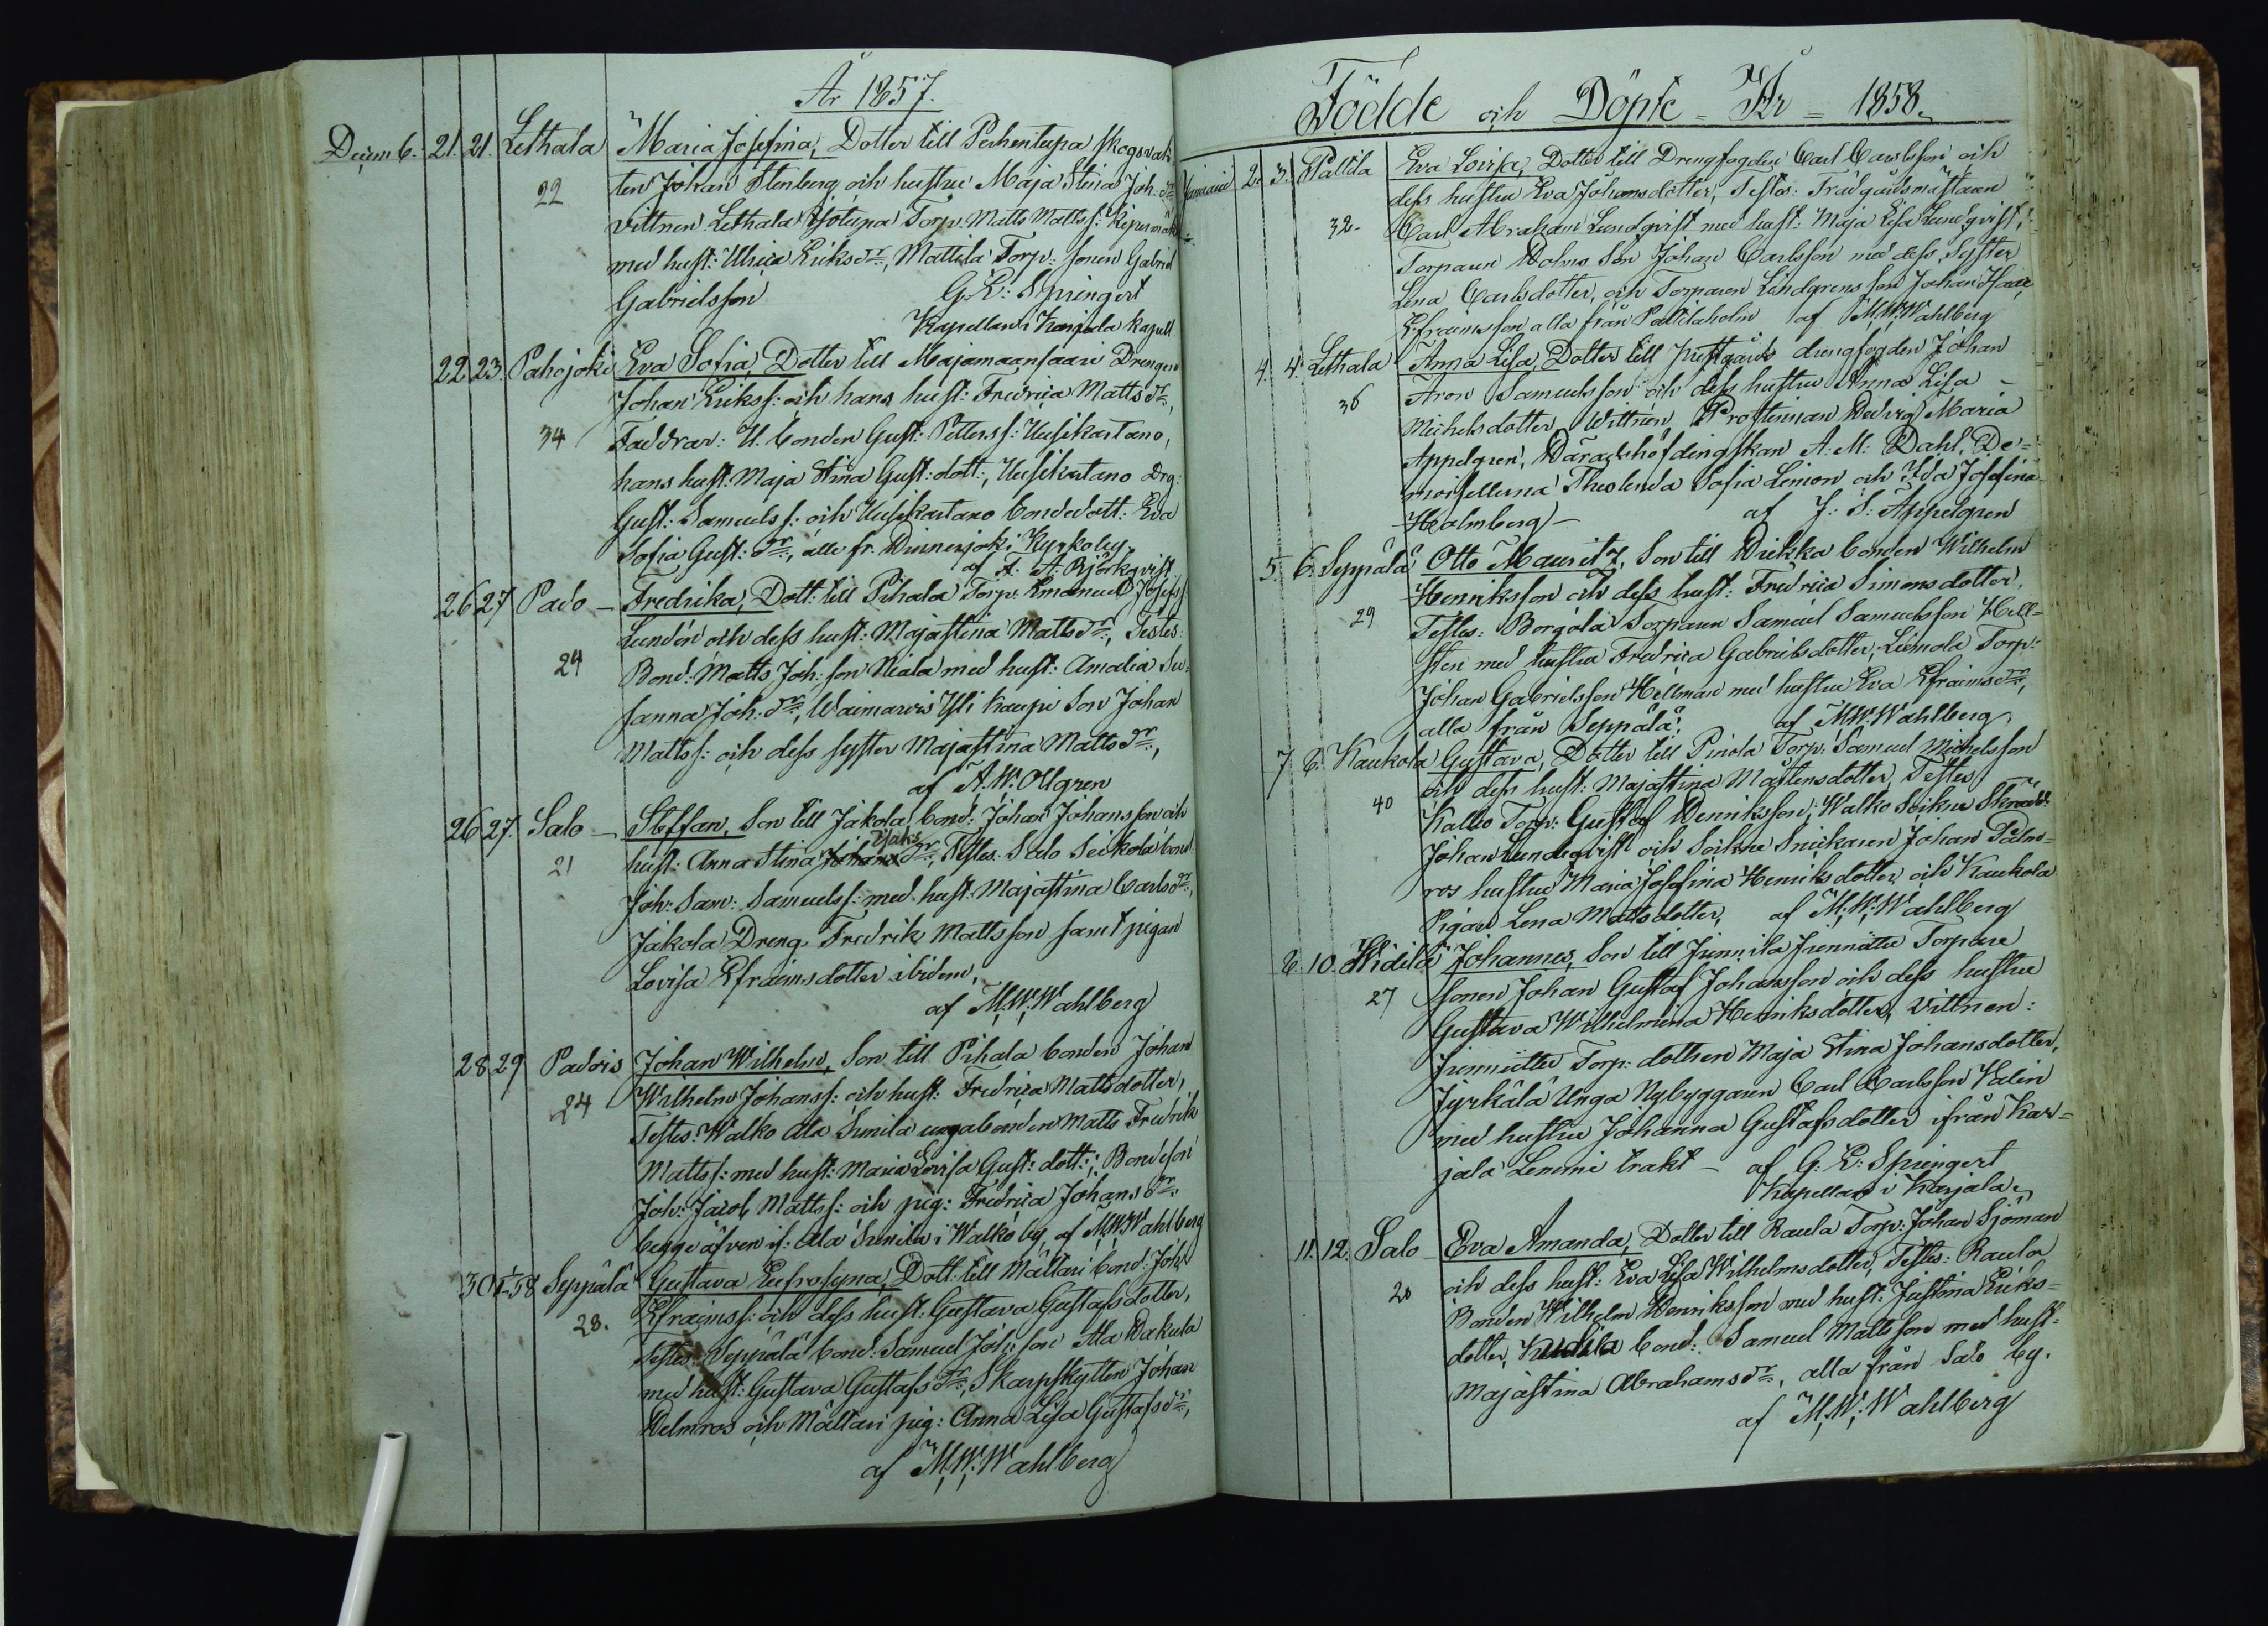 År 1857.
Decem b. 21. 21. Lethala Maria Josefina, Dotter till Perhentupa skogsvak
22 ten Johan Stenberg och hustru Maja Stina Joh. dr
vittnen Lethala Torp. Matts Matts s:
med hust: Ulrica Eriks dr, Mattila Torp: sonen Gabriel
Gabrielsson G. E: Springert
Kapellan i Karjala kapell
22 23. Pahojoki Eva Sofia, Dotter till Majamaansaari Drengen
Johan Eriks s: och hans hust: Fredrica Matts dr,
34 Faddrar: U. bonden Gust: Petters s: Uusikartano,
hans hust: Maja Stina Gust: dott:, Uusikartano Drg:
Gust: Samuels s: och Uusikartano bondedott: Eva
Sofia Gust: dr, alle fr. Kyrkoby.
af A. A: Björkqvist
26 27 Pado – Fredrika, Dott: till Pihala Torp: Emanuel Josefs
Lundén och dess hust: Majastina Matts dr, Testes:
24 Bond: Matts Joh: son Niala med hust: Amalia Su-
sanna Joh: dr, Waimaros Yli Kaupi Son Johan
Matts s: och dess syster Majastina Matts dr,
af A. W. Ollgren
26 27. Salo – Steffan, Son till Jakola bond: Johan Johansson och
Isaks
21 hust: Anna Stina Johans dr, Testes. Salo Seikola bond
Joh: Sam: Samuels s: med hust: Majastina Carls dr,
Jakola Dreng. Fredrik Mattsson samt pigan
Lovisa Efraimsdotter ibidem,
af M. W. Wahlberg
28 29 Padois Johan Wilhelm, Son till Pihala bonden Johan
24 Wilhelm Johans s: och hust: Fredrica Mattsdotter,
Testes: Walko Ala Simila unga bonden Matts Fredrik
Matts s: med hust: Maria Lovisa Gust: dott:, Bondeson
Joh: Jacob Matts s: och pig: Fredrica Johans dr
begge äfven if: Ala Simila i Walko by, af M. W. Wahlberg
30 1/1 58 Seppälä Gustava Eufrosyna, Dott: till Mattari bond: Joh:
28. Efraims s: och dess hust: Gustava Gustafsdotter,
Testes: Seppälä bond: Samuel Joh: son Ala Wakula
med hust: Gustava Gustafs dr, Skarpskytten Johan
Delmros och Mattari pig: Anna Lisa Gustafs dr,
af M. W. Wahlberg
Födde och Döpte = År = 1858.
Januari 2. 3. Pattila Eva Lovisa, Dotter till Drengfogden Carl Carlsson och
dess hustru Eva Johansdotter, Testes: Trädgårdsmästaren
32. Carl Abraham Lundqvist med hust: Maja Lisa Lundqvist,
Torparen Dolms Son Johan Carlsson med dess Syster
Lena Carlsdotter, och Torparen Lindgrens son Johan Isaac
Efraimsson alla från Pattilaholm af M. W. Wahlberg
4. 4. Lethala Anna Lisa, Dotter till prestgårds drengfogden Johan
36 Aron Samuelsson och dess hustru Anna Lisa –
Michelsdotter, Wittnen, Prostinnan Hedvig Maria
Appelgren, Häradshöfdingskan A. M: Dahl, De-
moisellerna Theolinda Sofia Limon och Ida Josefina
Holmberg – af J: S: Appelgren
5. 6. Seppälä Otto Mauritz, Son till Wiekka bonden Wilhelm
Henriksson och dess hust: Fredrica Simonsdotter,
29 Testes: Borgola Torparen Samuel Samuelsson Hell-
sten med hustru Fredrica Gabrielsdotter, Liinola Torp:
Johan Gabrielsson Hellman med hustru Eva Efraims dr,
alla från Seppälä, af M. W. Wahlberg,
7 8. Kaukola Gustava, Dotter till Pinola Torp: Samuel Michelsson
och dess hust: Majastina Mårtensdotter, Testes,
40 Kallio Torp: Gustaf Henriksson, Walko Soikue Skrädd:
Johan Lundeqvist och Soikue Snickaren Johan Palm-
ros hustru Maria Josefina Henriksdotter och Kaukola
Pigan Lena Mattsdotter, af M. W. Wahlberg
8. 10. Hidila Johannes, Son till Junnila Torpare
27 sonen Johan Gustaf Johansson och dess hustru
Gustava Wilhelmina Henriksdotter, Vittnen:
Torp: dottren Maja Stina Johansdotter,
Jyrkälä Unga Nybyggaren Carl Carlsson Walin
med hustru Johanna Gustafsdotter ifrån Kar-
jala Lemmi trakt – af G. E: Springert
Kapellan i Karjala.
11. 12. Salo – Eva Amanda, Dotter till Raula Torp: Johan Sjöman
20 och dess hust: Eva Lisa Wilhelmsdotter, Testes: Raula
Bonden Wilhelm Henriksson med hust: Justina Eriks-
dotter, bond: Samuel Mattsson med hust:
Majastina Abrahams dr, alla från Salo by.
af M. W. Wahlberg